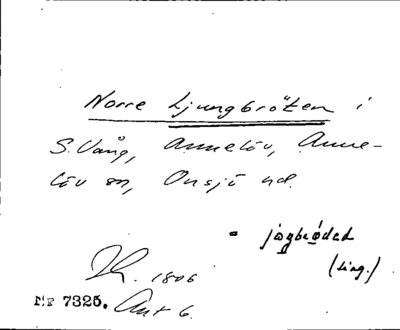 Norre Ljungbröten i
S. Vång, Annelöv, Anne-
löv sn, Onsjö hd.
(sing.)
1806
Nr 7325. Akt 6.